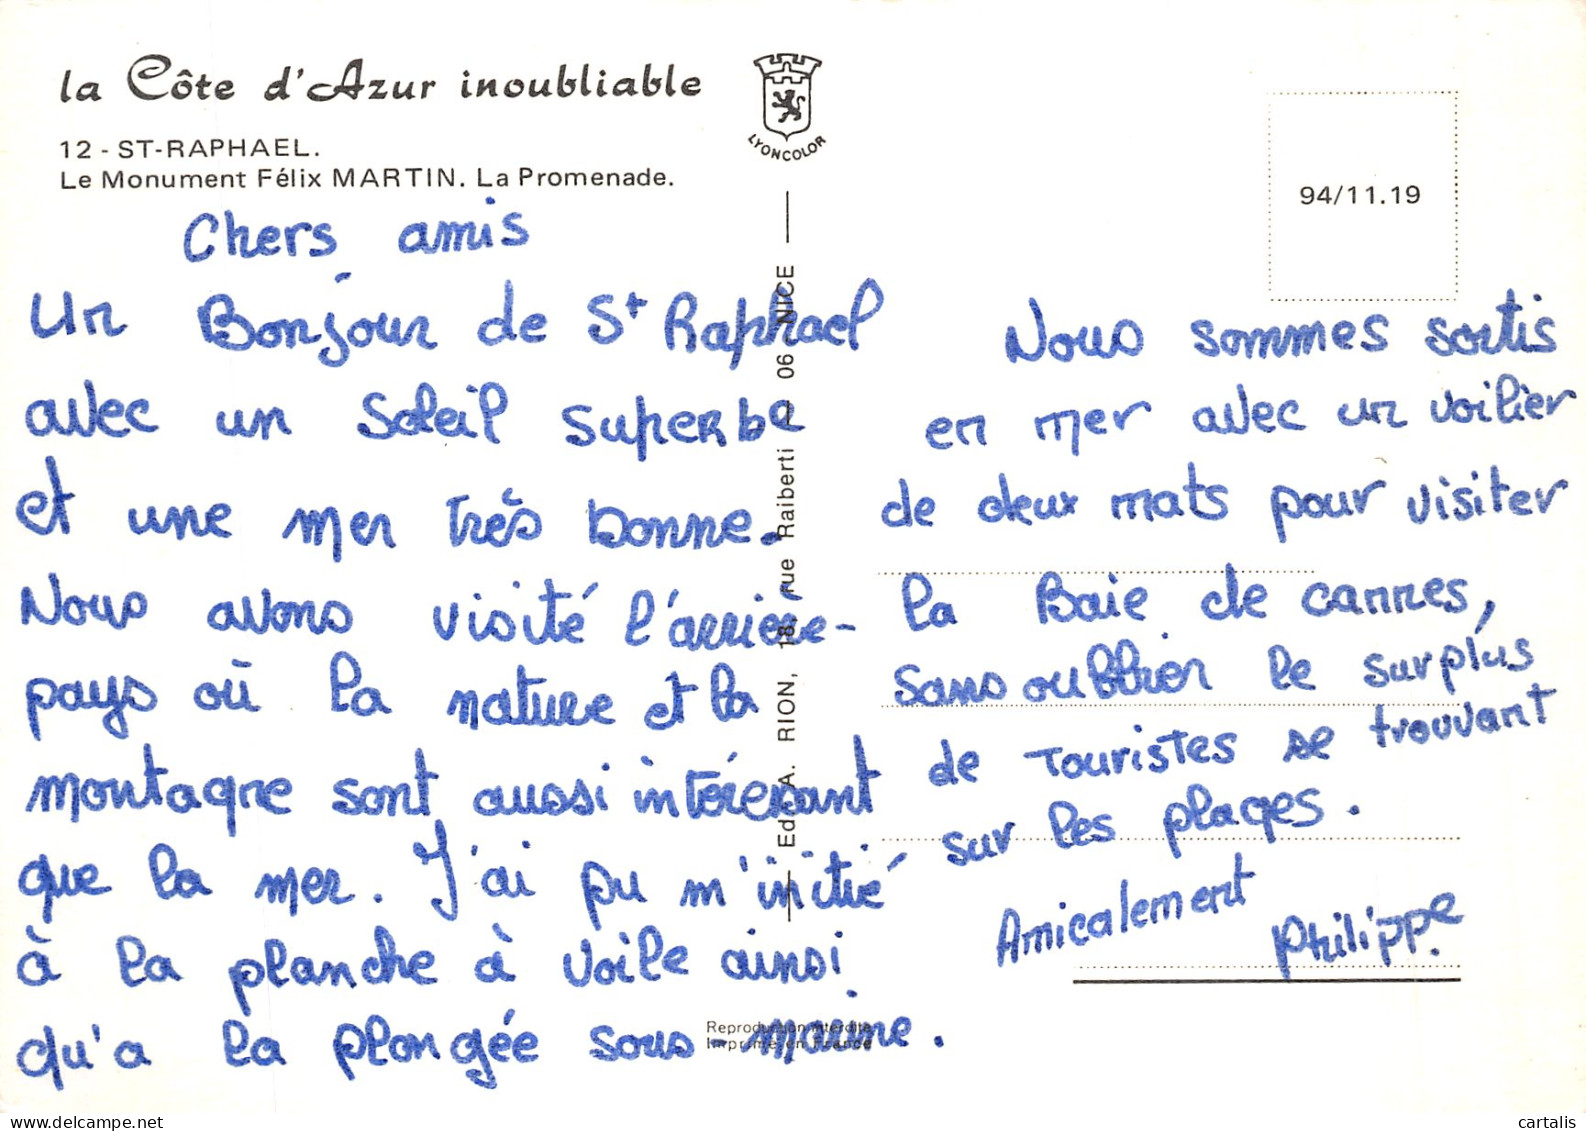 la Côte d'Azur inoubliable
12 - ST-RAPHAEL.
Le Monument Félix MARTIN. La Promenade.
LYONCOLOR
94/11.19
Chers amis
Un Bonjour de St Raphael
avec un Soleil superbe
et une mer très bonne.
Nous avons visité l'arrière-
pays où la nature et la
montagne sont aussi intéressant
que la mer. J'ai pu m'initié
à la planche à voile ainsi
qu'a la plongée sous-marine.
Nous sommes sortis
en mer avec un voilier
de deux mats pour visiter
la Baie de cannes,
sans oublier le surplus
de touristes se trouvant
sur les plages.
Amicalement
Philippe
Ed. A. RION, 18, rue Raiberti - 06 NICE
Reproduction interdite
Imprimé en France
cartalis